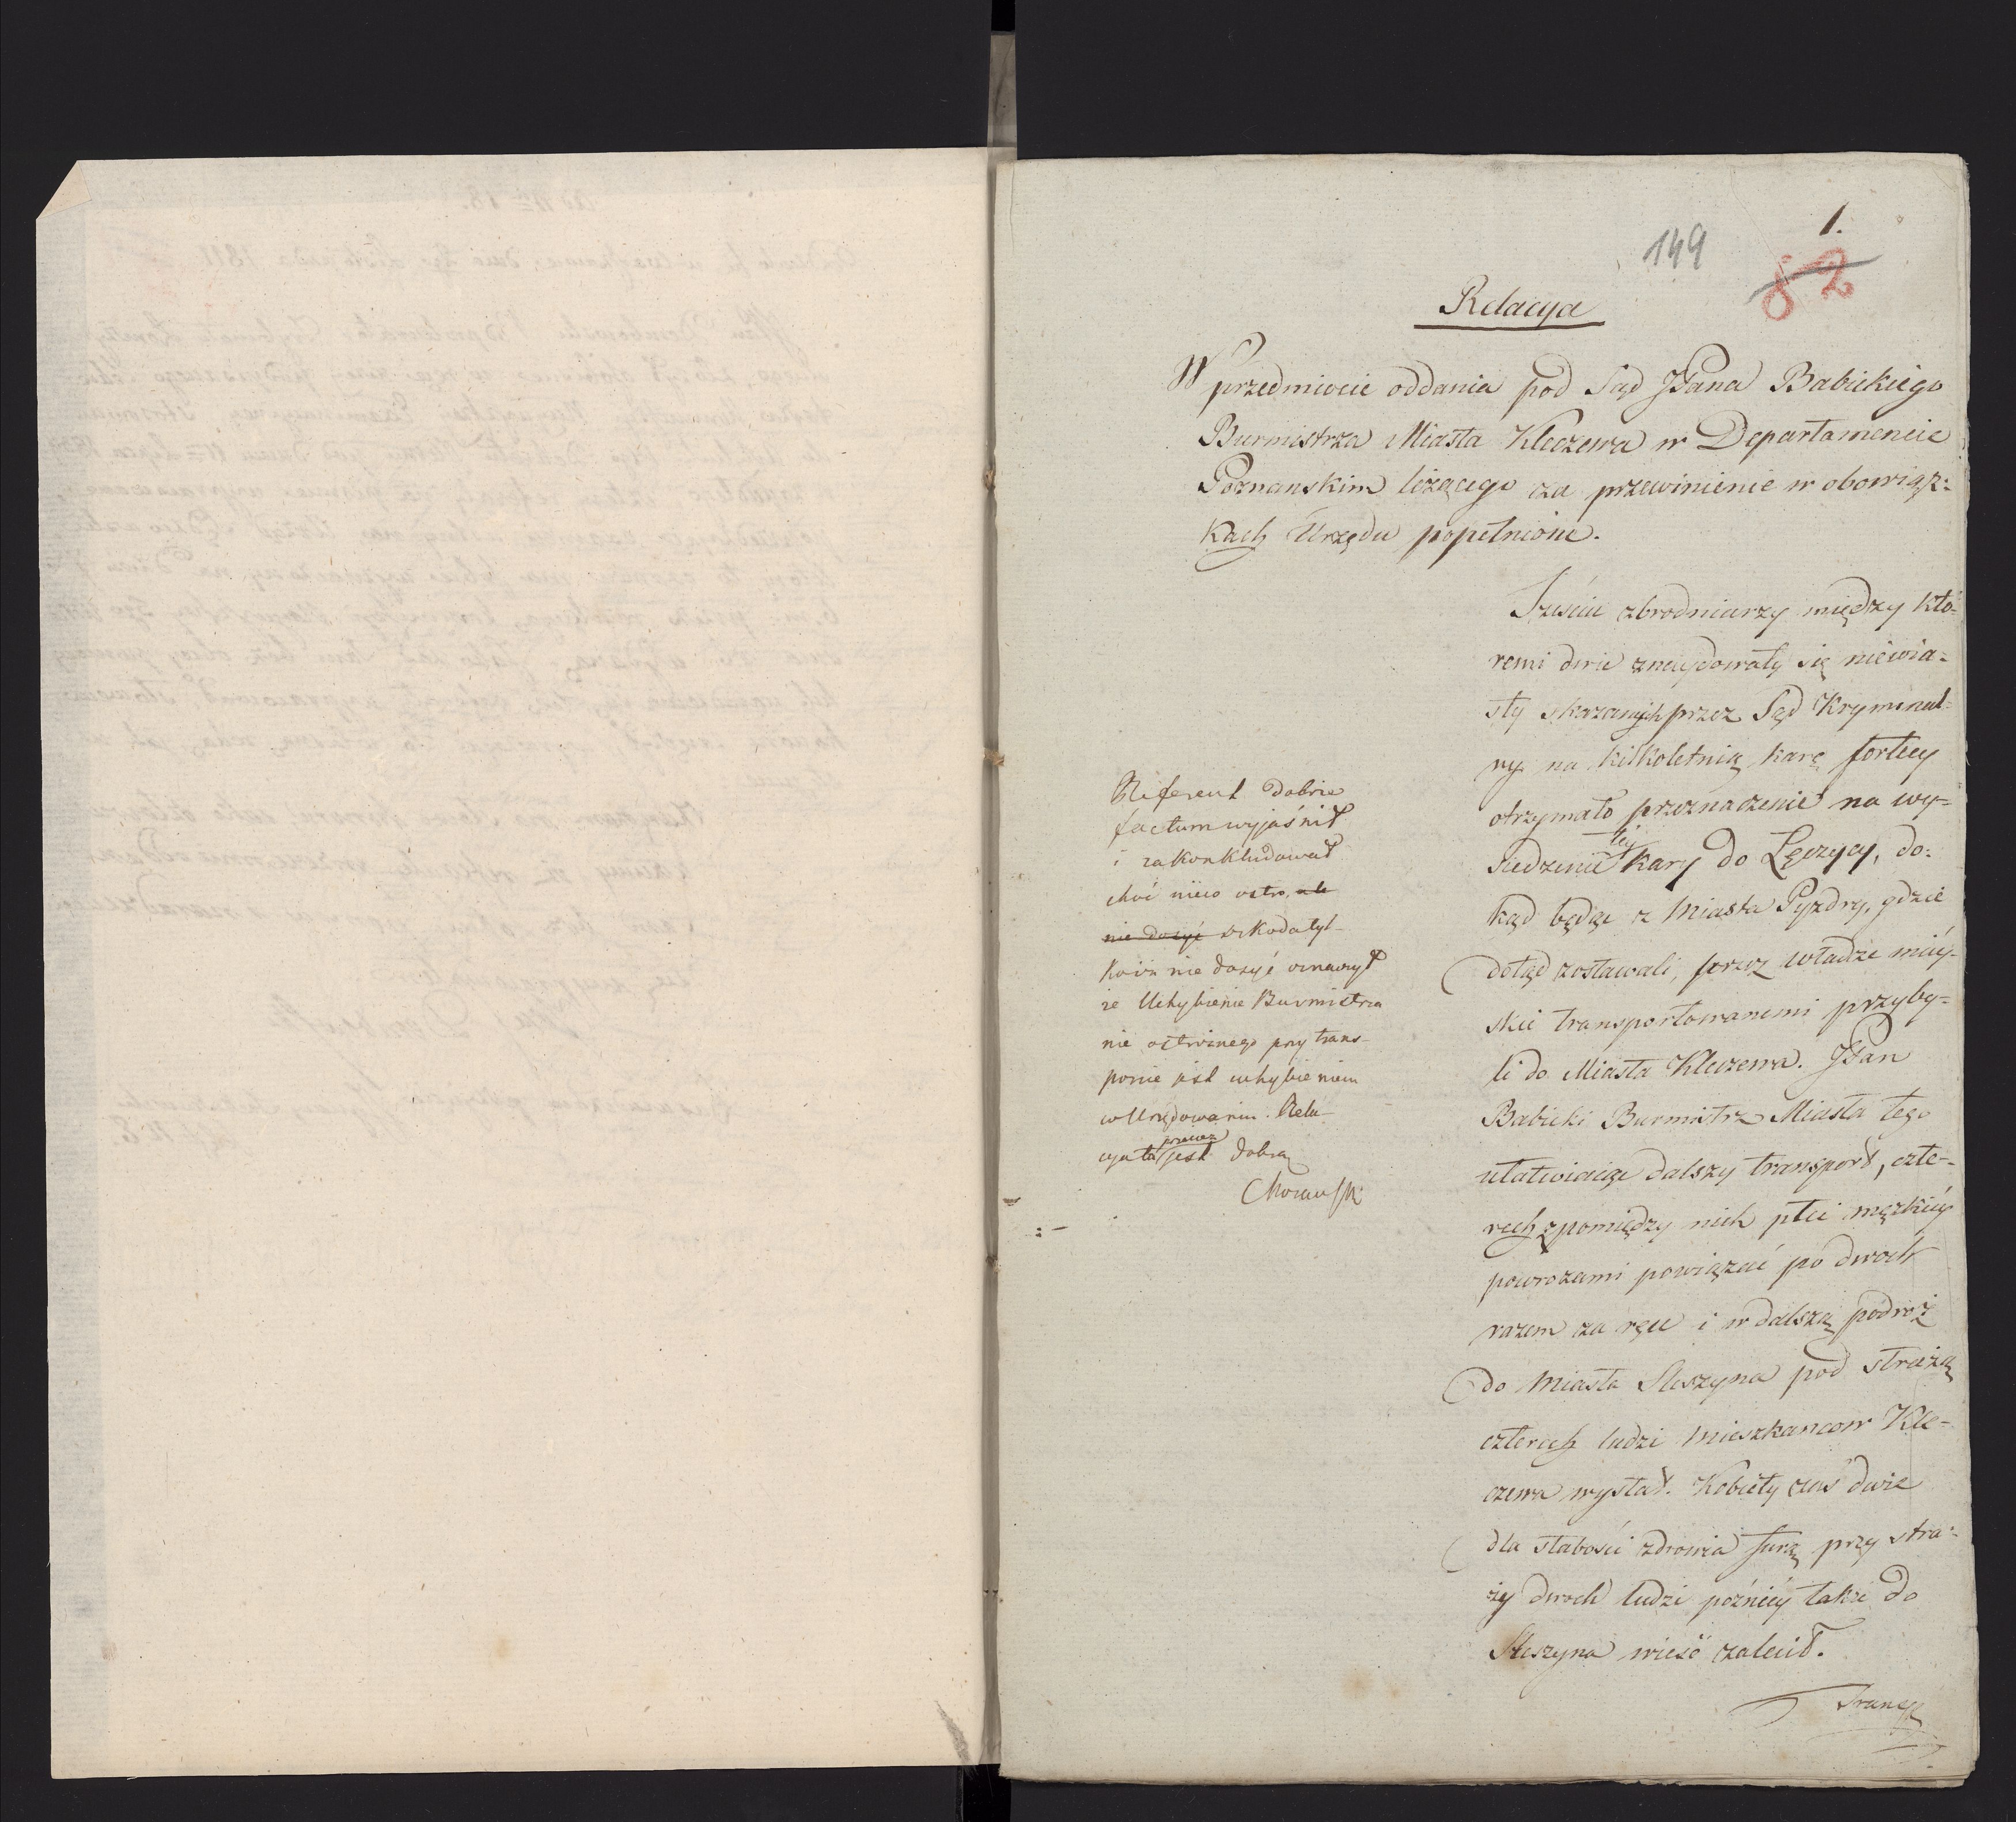 149
1.
82
Relacya
W przedmiocie oddania pod Sąd JPana Babickiego
Burmistrza Miasta Kleczewa w Departamencie
Poznanskim leżącego za przewinienie w obowiąz:
kach Urzędu popełnione.
Sześciu zbrodniarzy między kto-
remi dwie znaydowały się niewia-
sty skazanych przez Sąd Kryminal-
ny na kilkoletnią karę fortecy
otrzymało przeznaczenie na wy-
siedzenie tey kary do Łęczycy, do-
kąd będąc z Miasta Pyzdry, gdzie
dotąd zostawali, przez władze miey-
skie transportowanemi przyby-
li do Miasta Kleczewa. JPan
Babicki Burmistrz Miasta tego
ułatwiaiąc dalszy transport, czte-
rech zpomiędzy nich płci męzkiey
powrozami powiązać po dwoch
razem za ręce i w dalszą podroż
do Miasta Sleszyna pod strażą
czterech ludzi Mieszkancow Kle-
czewa wysłał. Kobiety zaś dwie
dla słabości zdrowia furą przy stra-
ży dwoch ludzi poźniey także do
Sleszyna wieść zalecił.
Referent dobrze
factum wyjaśnił
i zakonkludował
choć nieco ostro, ale
nie dosyć szkoda tyl-
ko iż nie dosyć oznaczył
że Uchybienie Burmistrza
nie ostrożnego przy trans-
porcie jest uchybieniem
w Urzędowaniu. Rela-
cya ta przecież jest dobra
Morawski